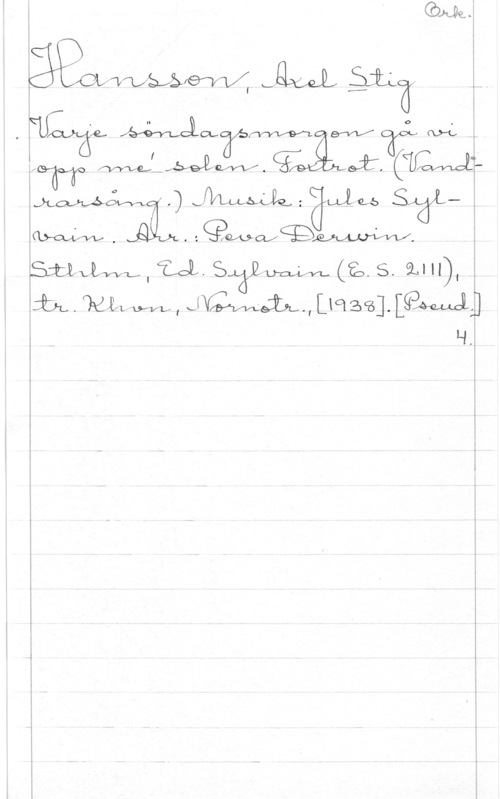 Ork.
Hansson, Axel Stig
Varje söndagsmorgon gå vi
opp me' solen. Foxtrot. (Vand-
rarsång.) Musik: Jules Syl-
vain. Arr.: Peva Derwin.
Sthlm, Ed. Sylvain (E. S. 2111),
tr. Khvn, Nornotr., [1938]. [Pseud.]
4.